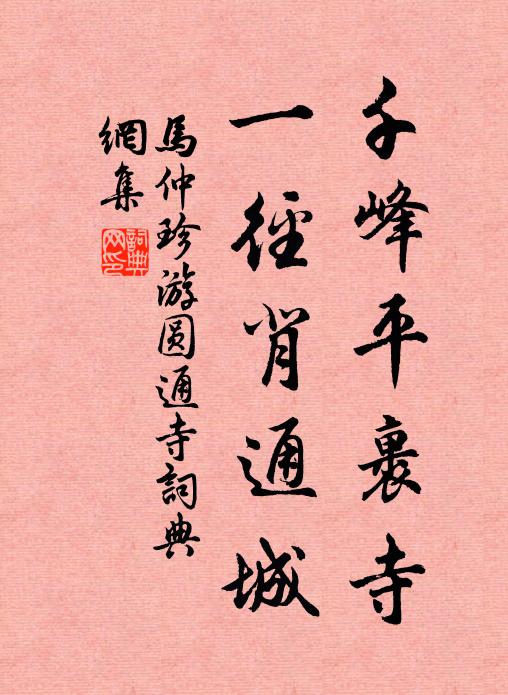 千峰平裹寺
一径背通城
馬仲珍游圆通寺詞典
網集
詞典网印